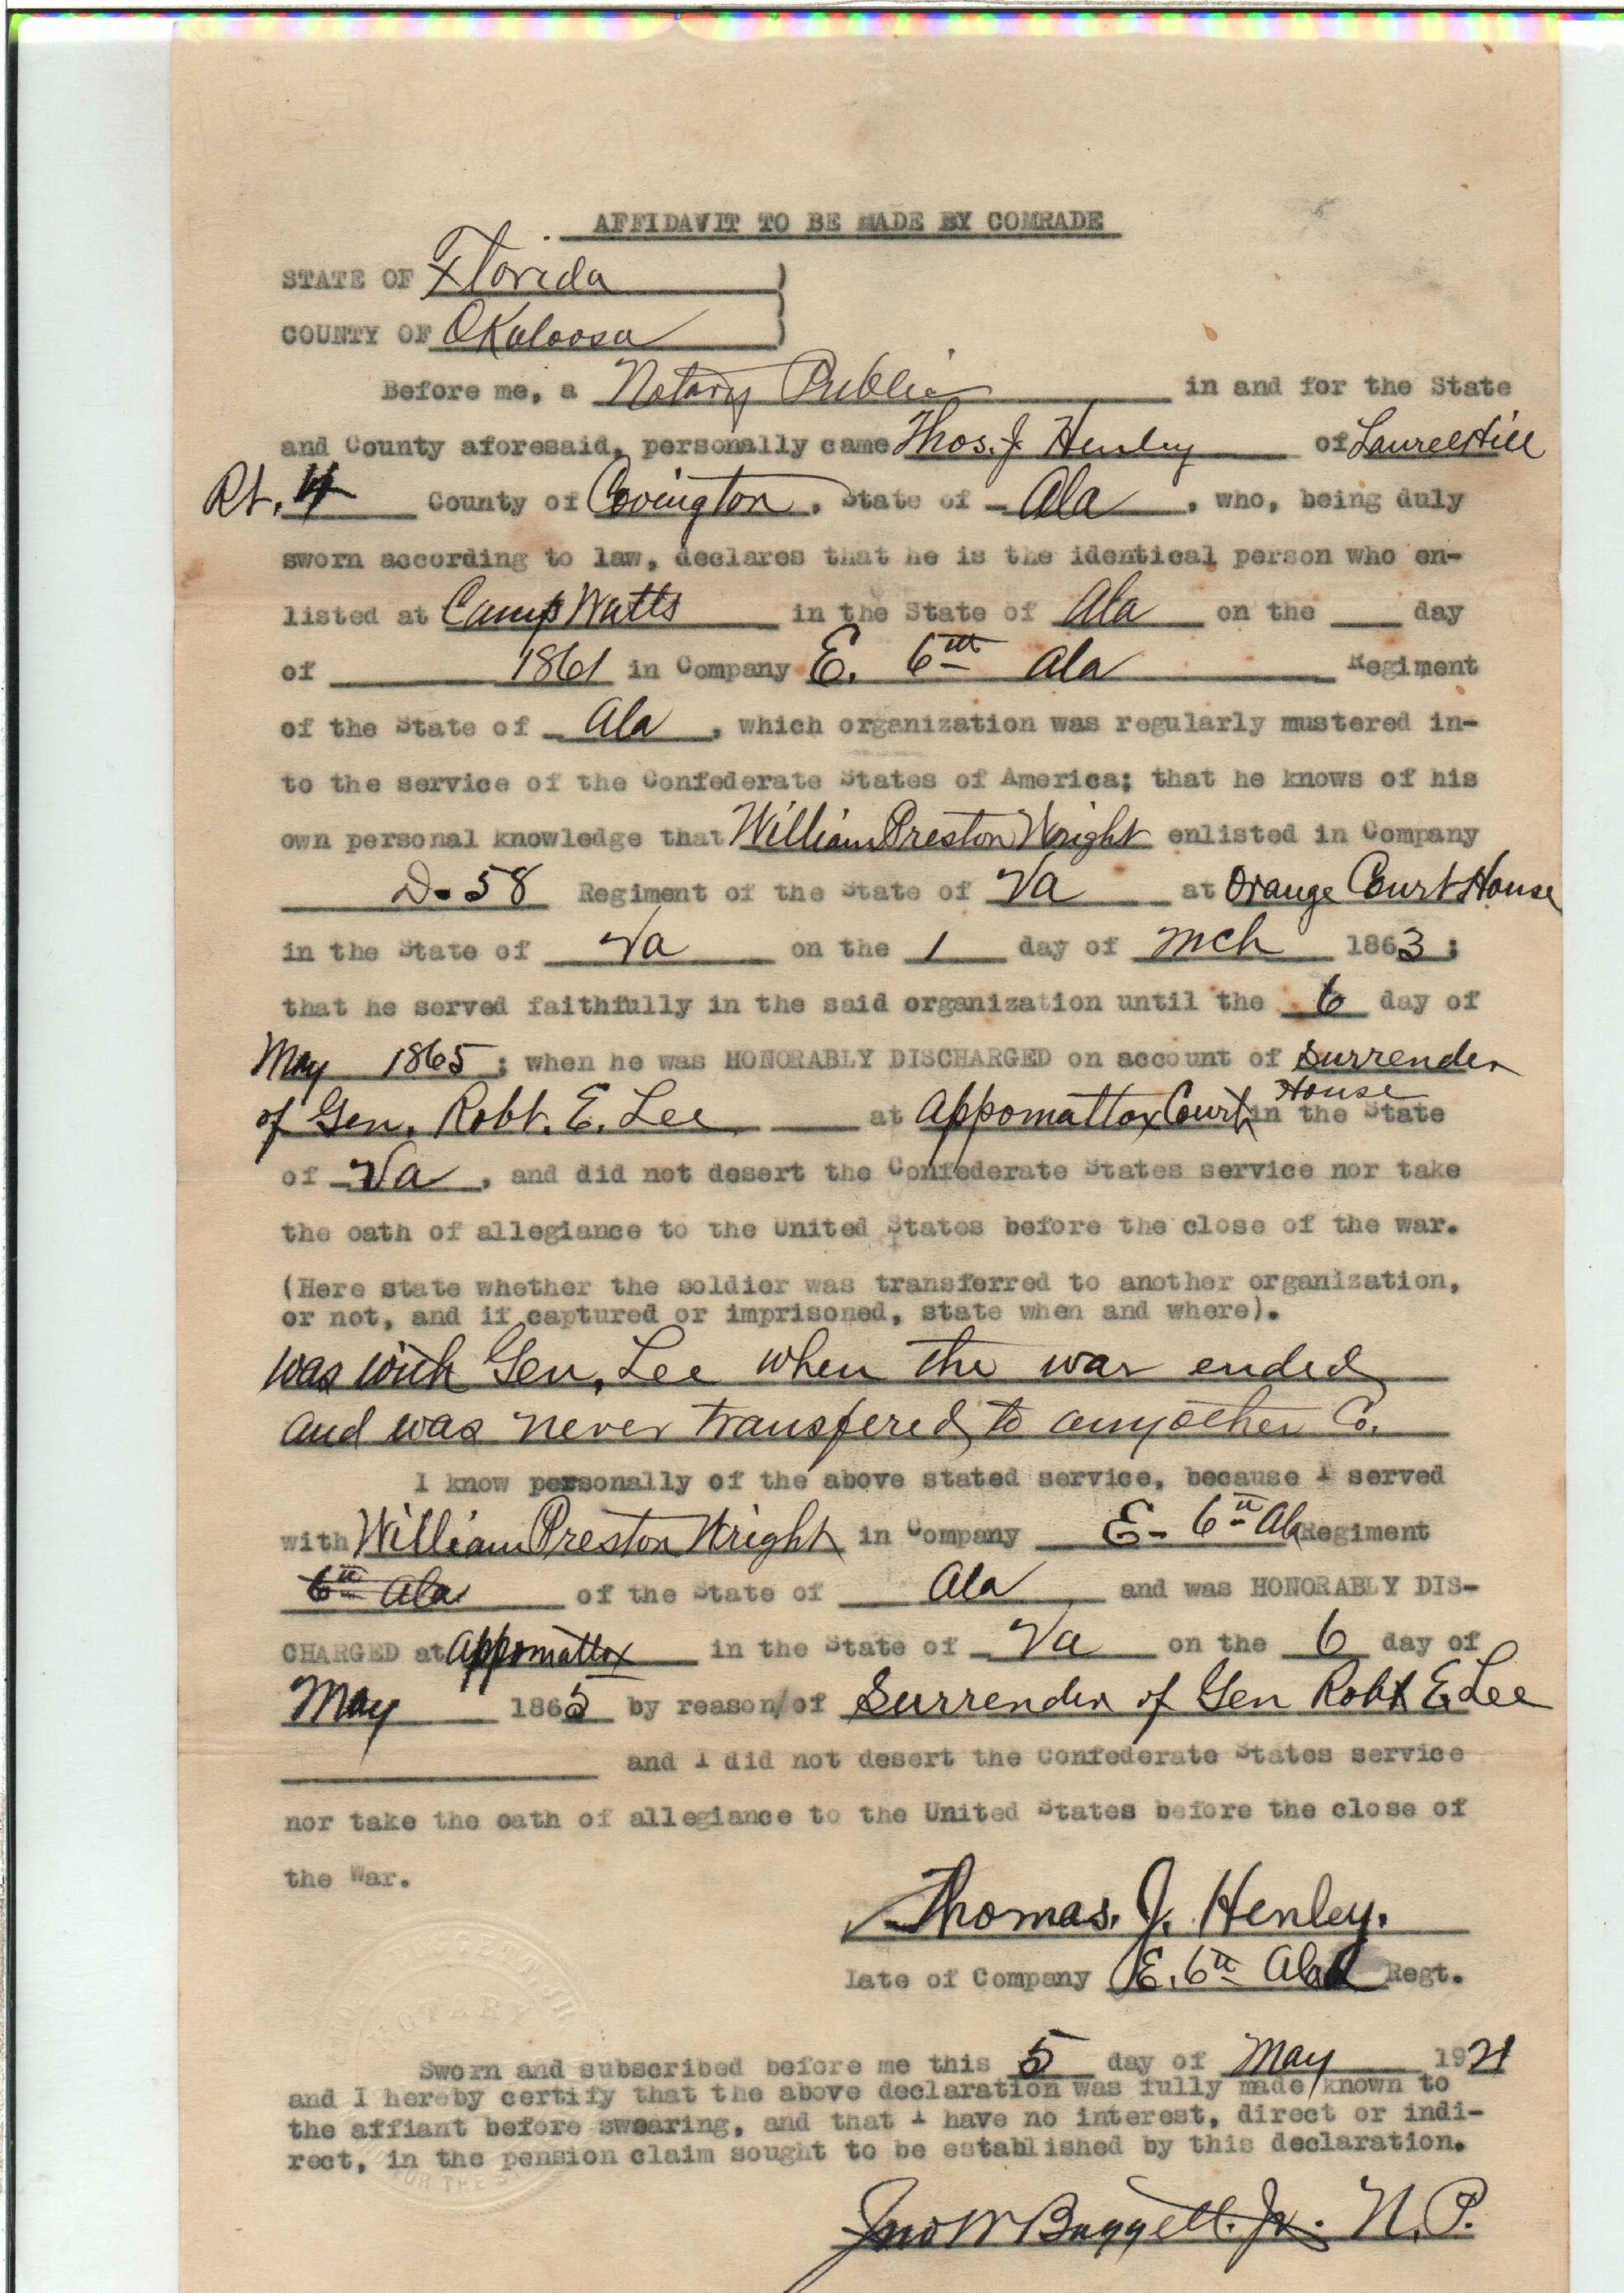 AFFIDAVIT TO BE MADE BY COMRADE
STATE OF Florida
COUNTY OF Okaloosa
Before me, a Notary Public in and for the State
and County aforesaid, personally came Thos. J Henley of Laurel Hill
Rt. 4 County of Covington, State of Ala, who, being duly
sworn according to law, declares that he is the identical person who en-
listed at Camp Watts in the State of Ala on the ___ day
of ___ 1861 in Company E. 6th Ala Regiment
of the State of Ala, which organization was regularly mustered in-
to the service of the Confederate States of America; that he knows of his
own personal knowledge that William Preston Wright enlisted in Company
D-58 Regiment of the State of Va at Orange Court House
in the State of Va on the 1 day of Mch 1863;
that he served faithfully in the said organization until the 6 day of
May 1865; when he was HONORABLY DISCHARGED on account of Surrender
of Gen. Robt. E. Lee at Appomattox Court House in the State
of Va, and did not desert the Confederate States service nor take
the oath of allegiance to the United States before the close of the war.
(Here state whether the soldier was transferred to another organization,
or not, and if captured or imprisoned, state when and where).
was with Gen. Lee when the war ended
and was never transfered to any other Co.
I know personally of the above stated service, because I served
with William Preston Wright in Company E- 6th Ala Regiment
6th Ala of the State of Ala and was HONORABLY DIS-
CHARGED at Appomattox in the State of Va on the 6 day of
May 1865 by reason/of Surrender of Gen Robt E. Lee
and I did not desert the Confederate States service
nor take the oath of allegiance to the United States before the close of
the War.
Thomas. J. Henley.
Late of Company E. 6th Ala Regt.
Sworn and subscribed before me this 5 day of May 1921
and I hereby certify that the above declaration was fully made known to
the affiant before swearing, and that I have no interest, direct or indi-
rect, in the pension claim sought to be established by this declaration.
Jno W Baggett. Jr. N. P.
NOTARY
FOR THE